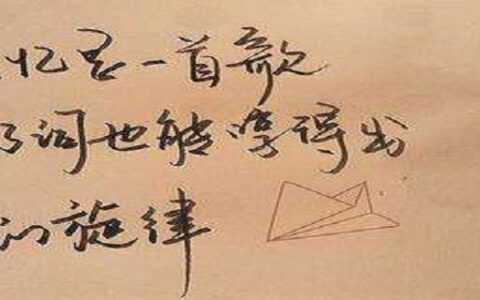 忆是一首歌
了词也能哼得出
的旋律